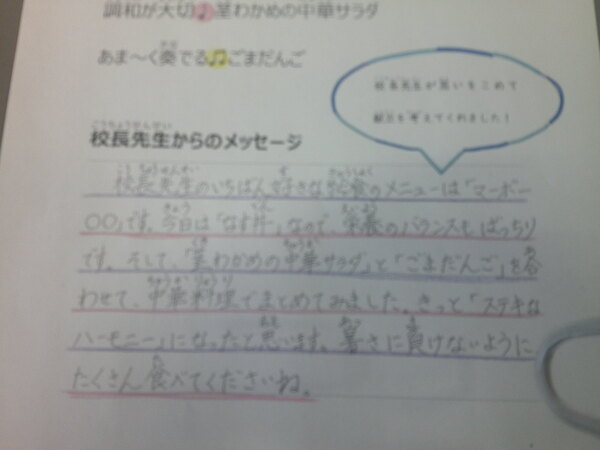 調和が大切♪茎わかめの中華サラダ
あま〜く奏でる♫ごまだんご
校長先生が思いをこめて
献立を考えてくれました！
校長先生からのメッセージ
校長先生のいちばん好きな給食のメニューは「マーボー
〇〇」です。今日は「なす丼」なので、栄養のバランスもばっちり
です。そして、「茎わかめの中華サラダ」と「ごまだんご」を合
わせて、中華料理でまとめてみました。きっと「ステキな
ハーモニー」になったと思います。暑さに負けないように
たくさん食べてくださいね。